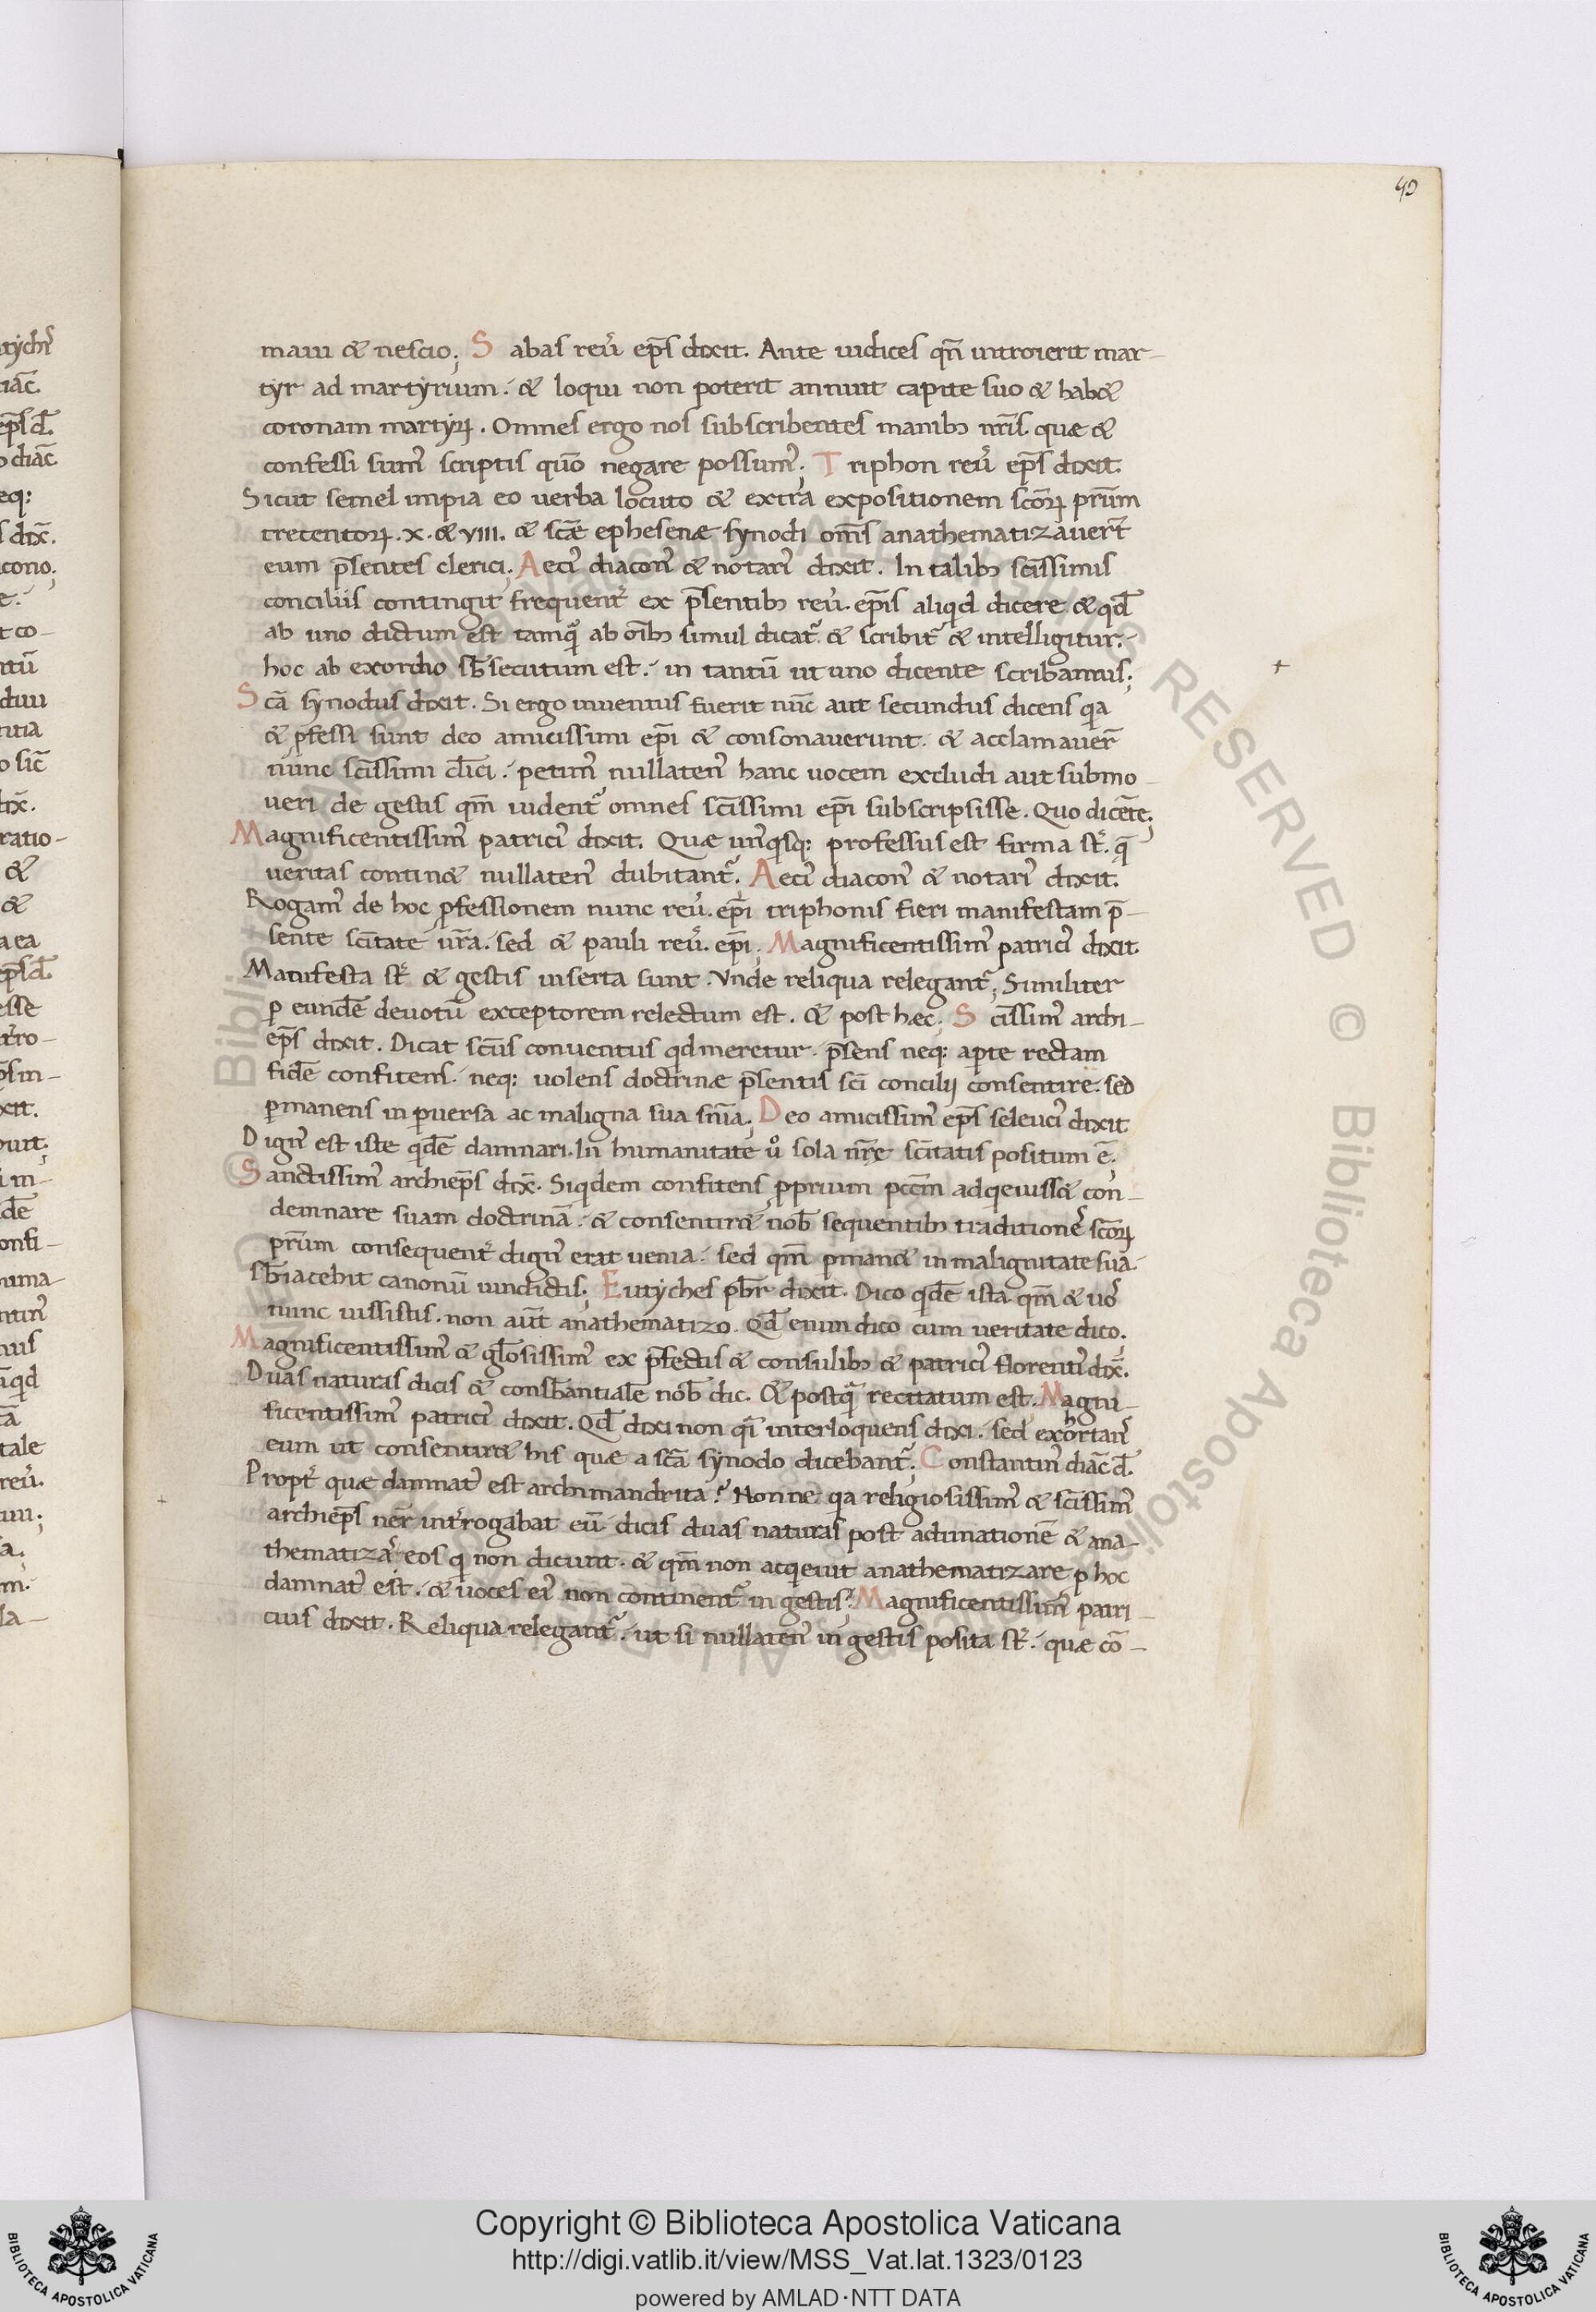 40
maui & nescio; Sabas reu̅ ep̅s dixit. Ante iudices qn̅ introierit mar-
tyr ad martyrium. & loqui non poterit annuit capite suo & hab&
coronam martyrꝝ. Omnes ergo nos subscribentes manibꝫ nr̅is. quæ &
confessi sumꝰ scriptis quo̅ negare possumꝰ; Triphon reu̅ ep̅s dixit.
Sicut semel impia eo uerba locuto & extra expositionem sco̅ꝝ pr̅um
tretentoꝝ .x. & VIII. & sc̅æ ephesenæ synodi om̅s anathematizauert̅
eum p̅sentes clerici. Aeciꝰ diaconꝰ & notariꝰ dixit. In talibꝫ sc̅issimis
conciliis contingit frequent̅ ex p̅sentibꝫ reu̅. ep̅is aliqd dicere & qd̅
ab uno dictum est tamq̅ ab oi̅bꝫ simul dicat᷑ & scribit᷑ & intelligitur.
hoc ab exordio sb̅secutum est. in tantu̅ ut uno dicente scribamus;
Sc̅a synodus dixit. Si ergo inuentus fuerit nu̅c aut secundus dicens qia
& ꝓfessi sunt deo amicissimi ep̅i & consonauerunt. & acclamauer̅
nunc sc̅issimi cl̅ici. petimꝰ nullatenꝰ hanc uocem excludi aut submo-
ueri de gestis qm̅ uident᷑ omnes sc̅issimi ep̅i subscripsisse. Quo dice̅te;
Magnificentissimꝰ patriciꝰ dixit. Quæ unꝰqsq: professus est firma st̅. q̅
ueritas contin& nullatenꝰ dubitant᷑. Aeciꝰ diaconꝰ & notariꝰ dixit.
Rogamꝰ de hoc ꝓfessionem nunc reu̅. ep̅i triphonis fieri manifestam p̅-
sente sc̅itate ur̅a. sed & pauli reu̅. ep̅i. Magnificentissimꝰ patriciꝰ dixit.
Manifesta st̅ & gestis inserta sunt. Vnde reliqua relegant᷑; Similiter
ꝑ eunde̅ deuotu̅ exceptorem relectum est. & post hec; Sc̅issimꝰ archi-
ep̅s dixit. Dicat sc̅us conuentus qd meretur. p̅sens neq: apte rectam
fide̅ confitens. neq: uolens doctrinæ p̅sentis sc̅i concilij consentire. sed
ꝑmanens in ꝑuersa ac maligna sua sn̅ia; Deo amicissimꝰ ep̅s seleuciꝰ dixit
Dignꝰ est iste qide̅ damnari. In humanitate uͦ sola nr̅e sc̅itatis positum e̅.
Sanctissimꝰ archiep̅s dix̅. Siqdem confitens ꝓprium pcc̅m adqieuiss& con-
demnare suam doctrina̅. & consentir& nob̅ sequentibꝫ traditione̅ sco̅ꝝ
pr̅um consequent̅ dignꝰ erat uenia. sed qm̅ ꝑman& in malignitate sua.
sb̅iacebit canonu̅ uindictis; Eutyches pb̅r dixit. Dico qide̅ ista qm̅ & uoꝰ
nunc iussistis. non aut̅ anathematizo. Qd̅ enim dico cum ueritate dico.
Magnificentissimꝰ & gl̅osissimꝰ ex p̅fectis & consulibꝫ & patriciꝰ florentiꝰ dix̅.
Duas naturas dicis & consb̅antiale̅ nob̅ dic. & postq̅ recitatum est. Magni-
ficentissimꝰ patriciꝰ dixit. Qd̅ dixi non q̅i interloquens dixi. sed exhortanꝰ
eum ut consentir& his quæ a sc̅a synodo dicebant᷑; Constantinꝰ diac̅ d̅.
Propt̅ quæ damnatꝰ est archimandrita? Nonne qia religiosissimꝰ & sc̅issimꝰ
archiep̅s ner̅ int̅rogabat eu̅ dicis duas naturas post adunatione̅ & ana-
thematizaꝰ eos qi non dicunt. & qm̅ non acqieuit anathematizare ꝑ hoc
damnatꝰ est. & uoces eiꝰ non continent᷑ in gestis? Magnificentissimꝰ patri-
cius dixit. Reliqua relegant᷑. ut si nullatenꝰ in gestis posita st̅. quæ co̅-
Copyright © Biblioteca Apostolica Vaticana
http://digi.vatlib.it/view/MSS_Vat.lat.1323/0123
powered by AMLAD·NTT DATA
BIBLIOTECA APOSTOLICA VATICANA
BIBLIOTECA APOSTOLICA VATICANA